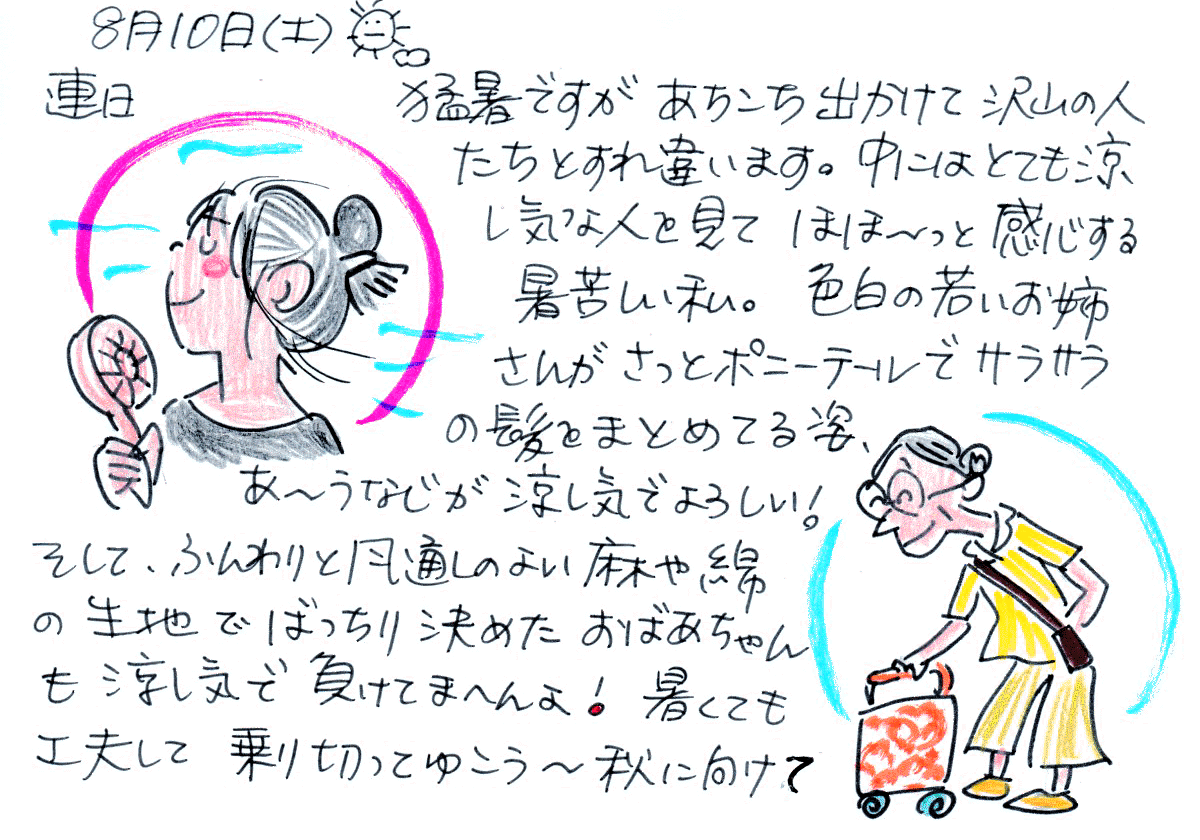 8月10日(土)
連日 猛暑ですが あちこち出かけて 沢山の人
たちとすれ違います。中にはとても涼
し気な人を見て ほほ〜っと感心する
暑苦しい私。 色白の若いお姉
さんが さっとポニーテールで サラサラ
の髪をまとめてる姿、
あ〜うなじが 涼し気でよろしい!
そして、ふんわりと風通しのよい 麻や綿
の生地で ばっちり決めた おばあちゃん
も 涼し気で 負けてまへんよ! 暑くても
工夫して 乗り切ってゆこう〜秋に向けて